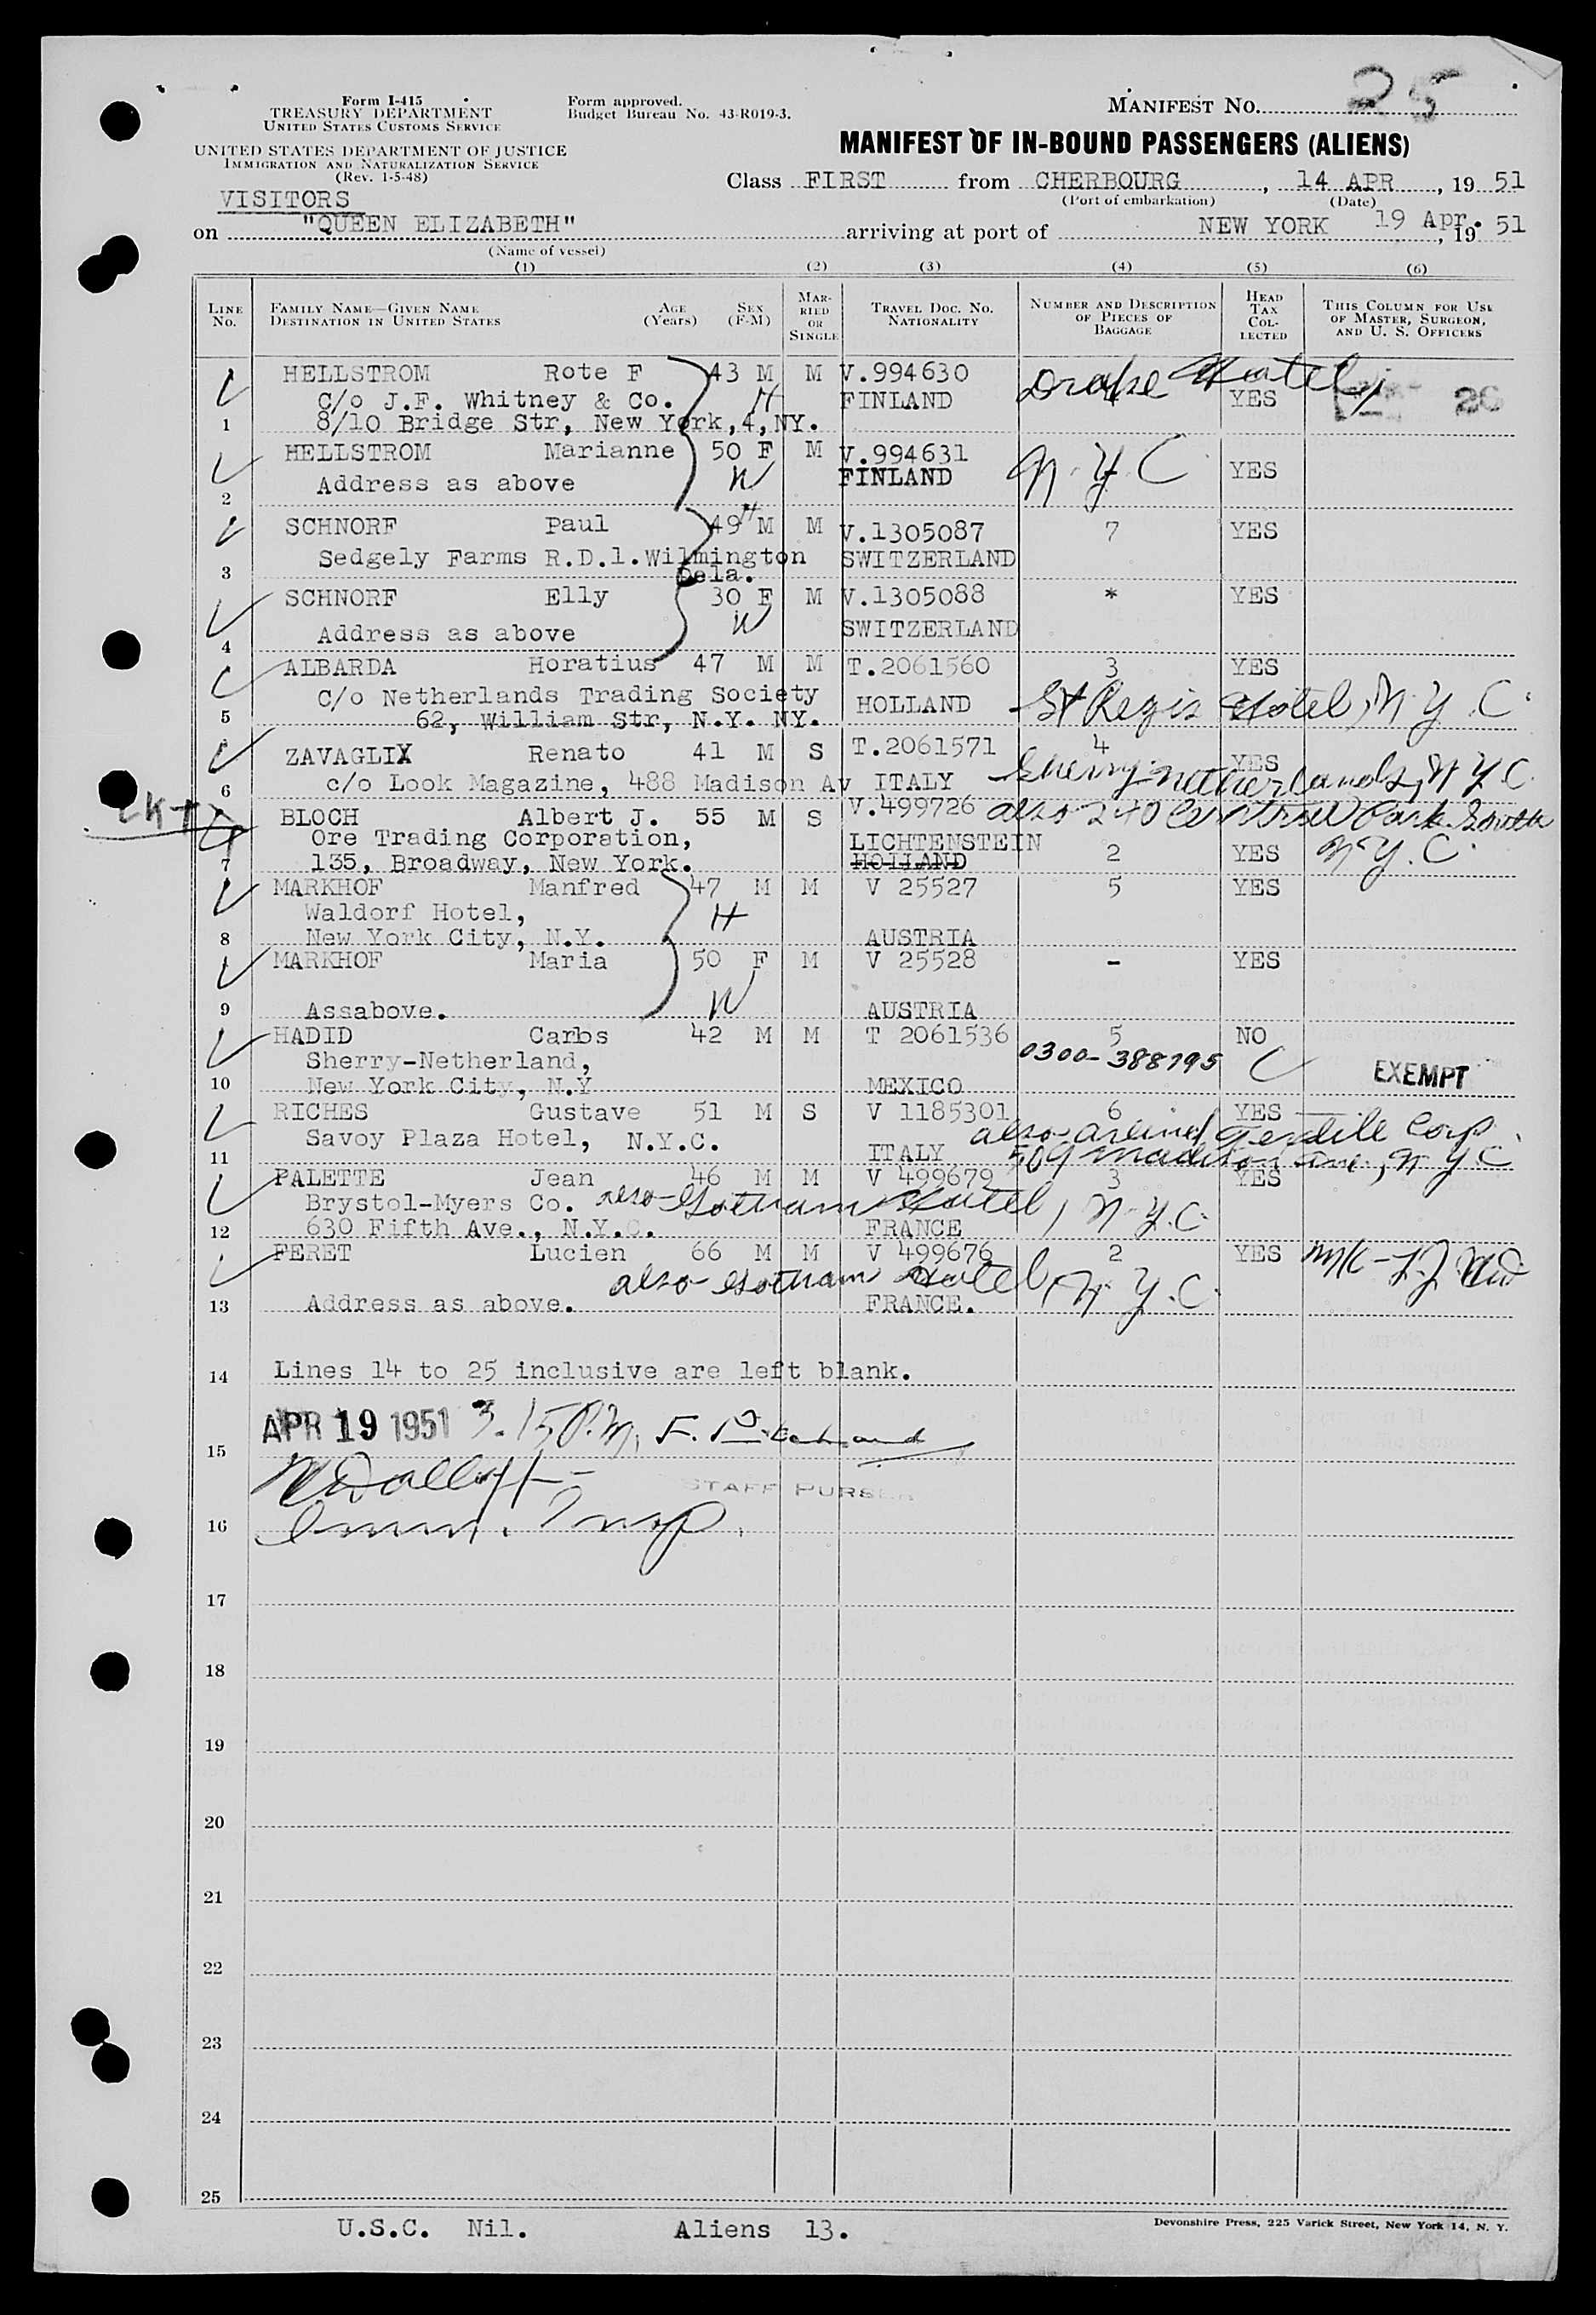 Form I-415
TREASURY DEPARTMENT
UNITED STATES CUSTOMS SERVICE
UNITED STATES DEPARTMENT OF JUSTICE
IMMIGRATION AND NATURALIZATION SERVICE
(Rev. 1-5-48)
Form approved.
Budget Bureau No. 43-R019-3.
MANIFEST NO. 25
MANIFEST OF IN-BOUND PASSENGERS (ALIENS)
Class FIRST from CHERBOURG, 14 APR, 19 51
(Port of embarkation) (Date)
VISITORS
on "QUEEN ELIZABETH" arriving at port of NEW YORK 19 Apr., 19 51
(Name of vessel)
(1) (2) (3) (4) (5) (6)
LINE No. FAMILY NAME—GIVEN NAME DESTINATION IN UNITED STATES AGE (Years) SEX (F-M) MARRIED OR SINGLE TRAVEL DOC. NO. NATIONALITY NUMBER AND DESCRIPTION OF PIECES OF BAGGAGE HEAD TAX COLLECTED THIS COLUMN FOR USE OF MASTER, SURGEON, AND U. S. OFFICERS
HELLSTROM Rote F 43 M M V.994630 Drake Hotel,
C/o J.F. Whitney & Co. H FINLAND YES 26
1 8/10 Bridge Str, New York,4,NY.
HELLSTROM Marianne 50 F M V.994631 N.Y.C. YES
2 Address as above W FINLAND
SCHNORF Paul 49 H M M V.1305087 7 YES
Sedgely Farms R.D.1.Wilmington SWITZERLAND
3 Dela.
SCHNORF Elly 30 F M V.1305088 * YES
4 Address as above W SWITZERLAND
ALBARDA Horatius 47 M M T.2061560 3 YES
C/o Netherlands Trading Society HOLLAND St Regis Hotel, N.Y.C.
5 62, William Str, N.Y. NY.
ZAVAGLIX Renato 41 M S T.2061571 4 YES
6 c/o Look Magazine, 488 Madison Av ITALY Sherry-Netherlands, N.Y.C.
BLOCH Albert J. 55 M S V.499726 also 240 Central Park South
Ore Trading Corporation, LICHTENSTEIN N.Y.C.
7 135, Broadway, New York. HOLLAND 2 YES
MARKHOF Manfred 47 M M V 25527 5 YES
Waldorf Hotel, H
8 New York City, N.Y. AUSTRIA
MARKHOF Maria 50 F M V 25528 - YES
9 Assabove. W AUSTRIA
HADID Carbs 42 M M T 2061536 5 NO
Sherry-Netherland, 0300-388795 EXEMPT
10 New York City, N.Y MEXICO
RICHES Gustave 51 M S V 1185301 6 YES
Savoy Plaza Hotel, N.Y.C. also Textile Corp
11 ITALY 509 Madison Ave., N.Y.C.
PALETTE Jean 46 M M V 499679 3 YES
Brystol-Myers Co. also Gotham Hotel, N.Y.C.
12 630 Fifth Ave., N.Y.C. FRANCE
FERET Lucien 66 M M V 499676 2 YES
also Gotham Hotel, N.Y.C.
13 Address as above. FRANCE.
14 Lines 14 to 25 inclusive are left blank.
APR 19 1951 3.15 P.M.
15
STAFF PURSER
16 Imm. Insp.
17
18
19
20
21
22
23
24
25
U.S.C. Nil. Aliens 13.
Devonshire Press, 225 Varick Street, New York 14, N. Y.